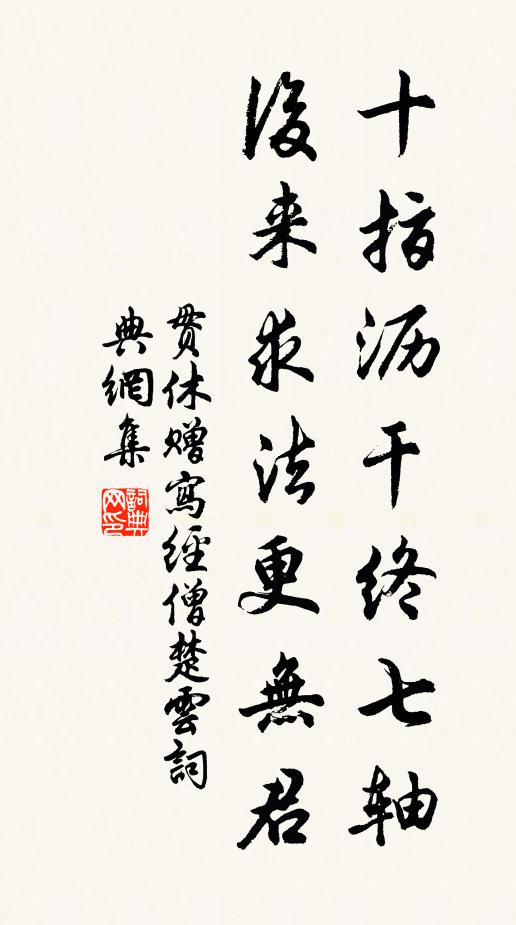 十指沥干终七轴
後来求法更無君
贯休赠寫經僧楚雲詞
典網集
詞典網印